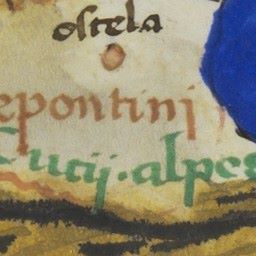 oscela
epontinj
Cutij.alpes